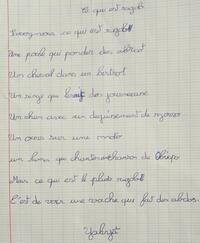 Ce qui est rigolo
Savez-vous ce qui est rigolo
Une poule qui ponder des abricot
Un cheval dans un bistrot
Un singe qui des journeaux
Un chien avec un déguisement de
Un ours sur une moto
un lama qui chante chanson de
Mais ce qui est plus rigolo
C'est de voir une vache qui fait des abdos.